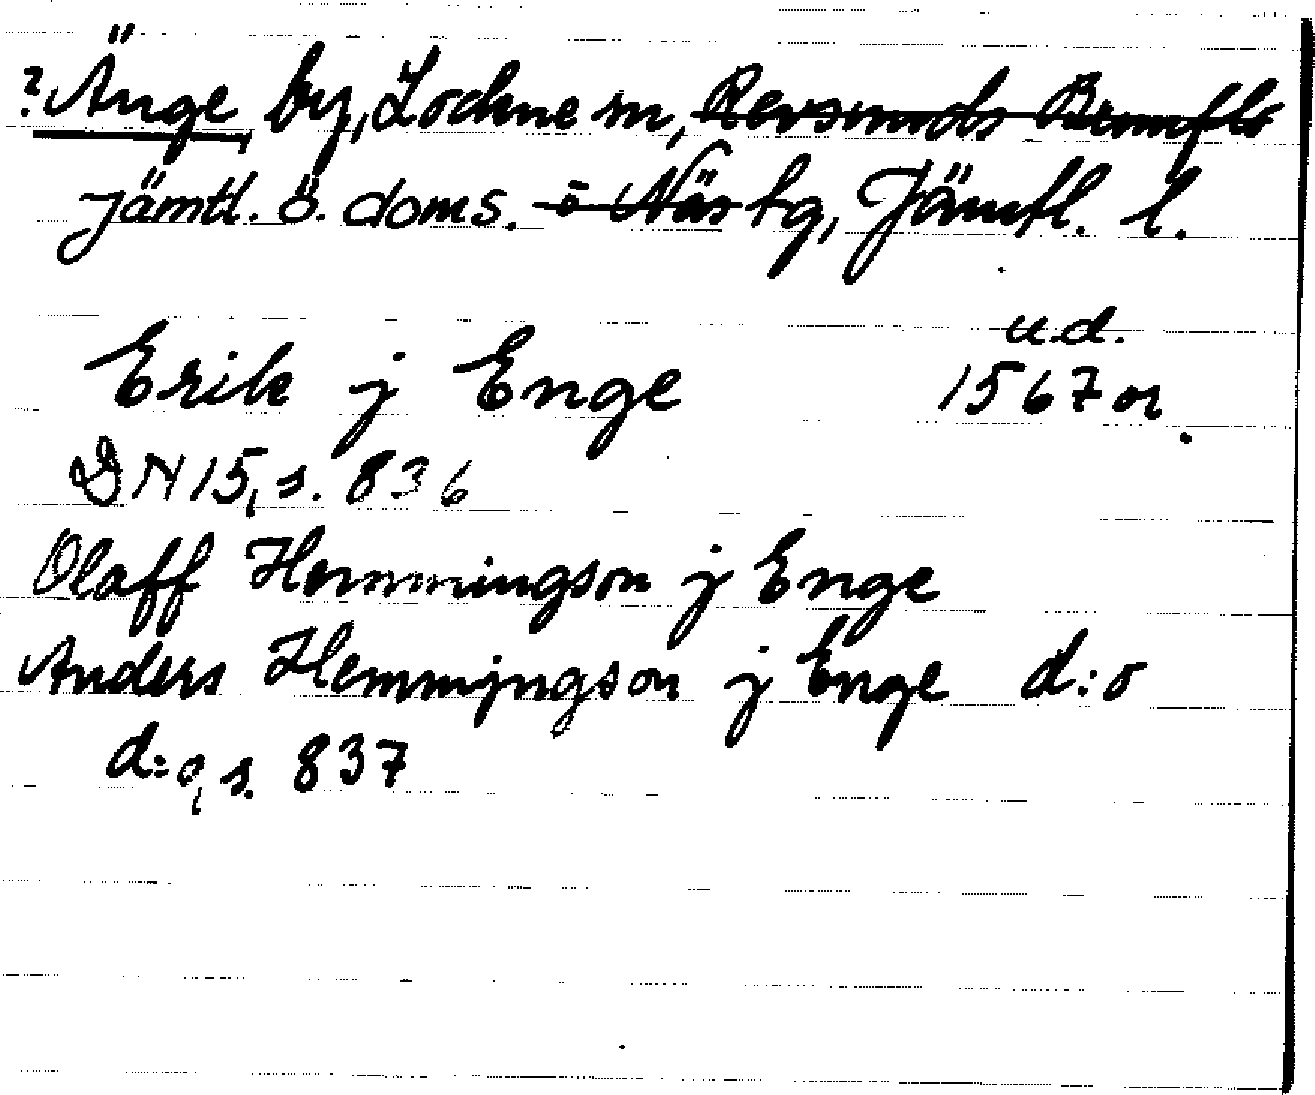 ? Änge, by, Lockne sn, Revsunds Brunflo
Jämtl. ö. doms. o Näs tg, Jämtl. l.
u.d.
Erik j Enge 1567 or.
DN 15, s. 836
Olaff Hemmingson j Enge
Anders Hemmjngson j Enge d:o
d:o, s. 837